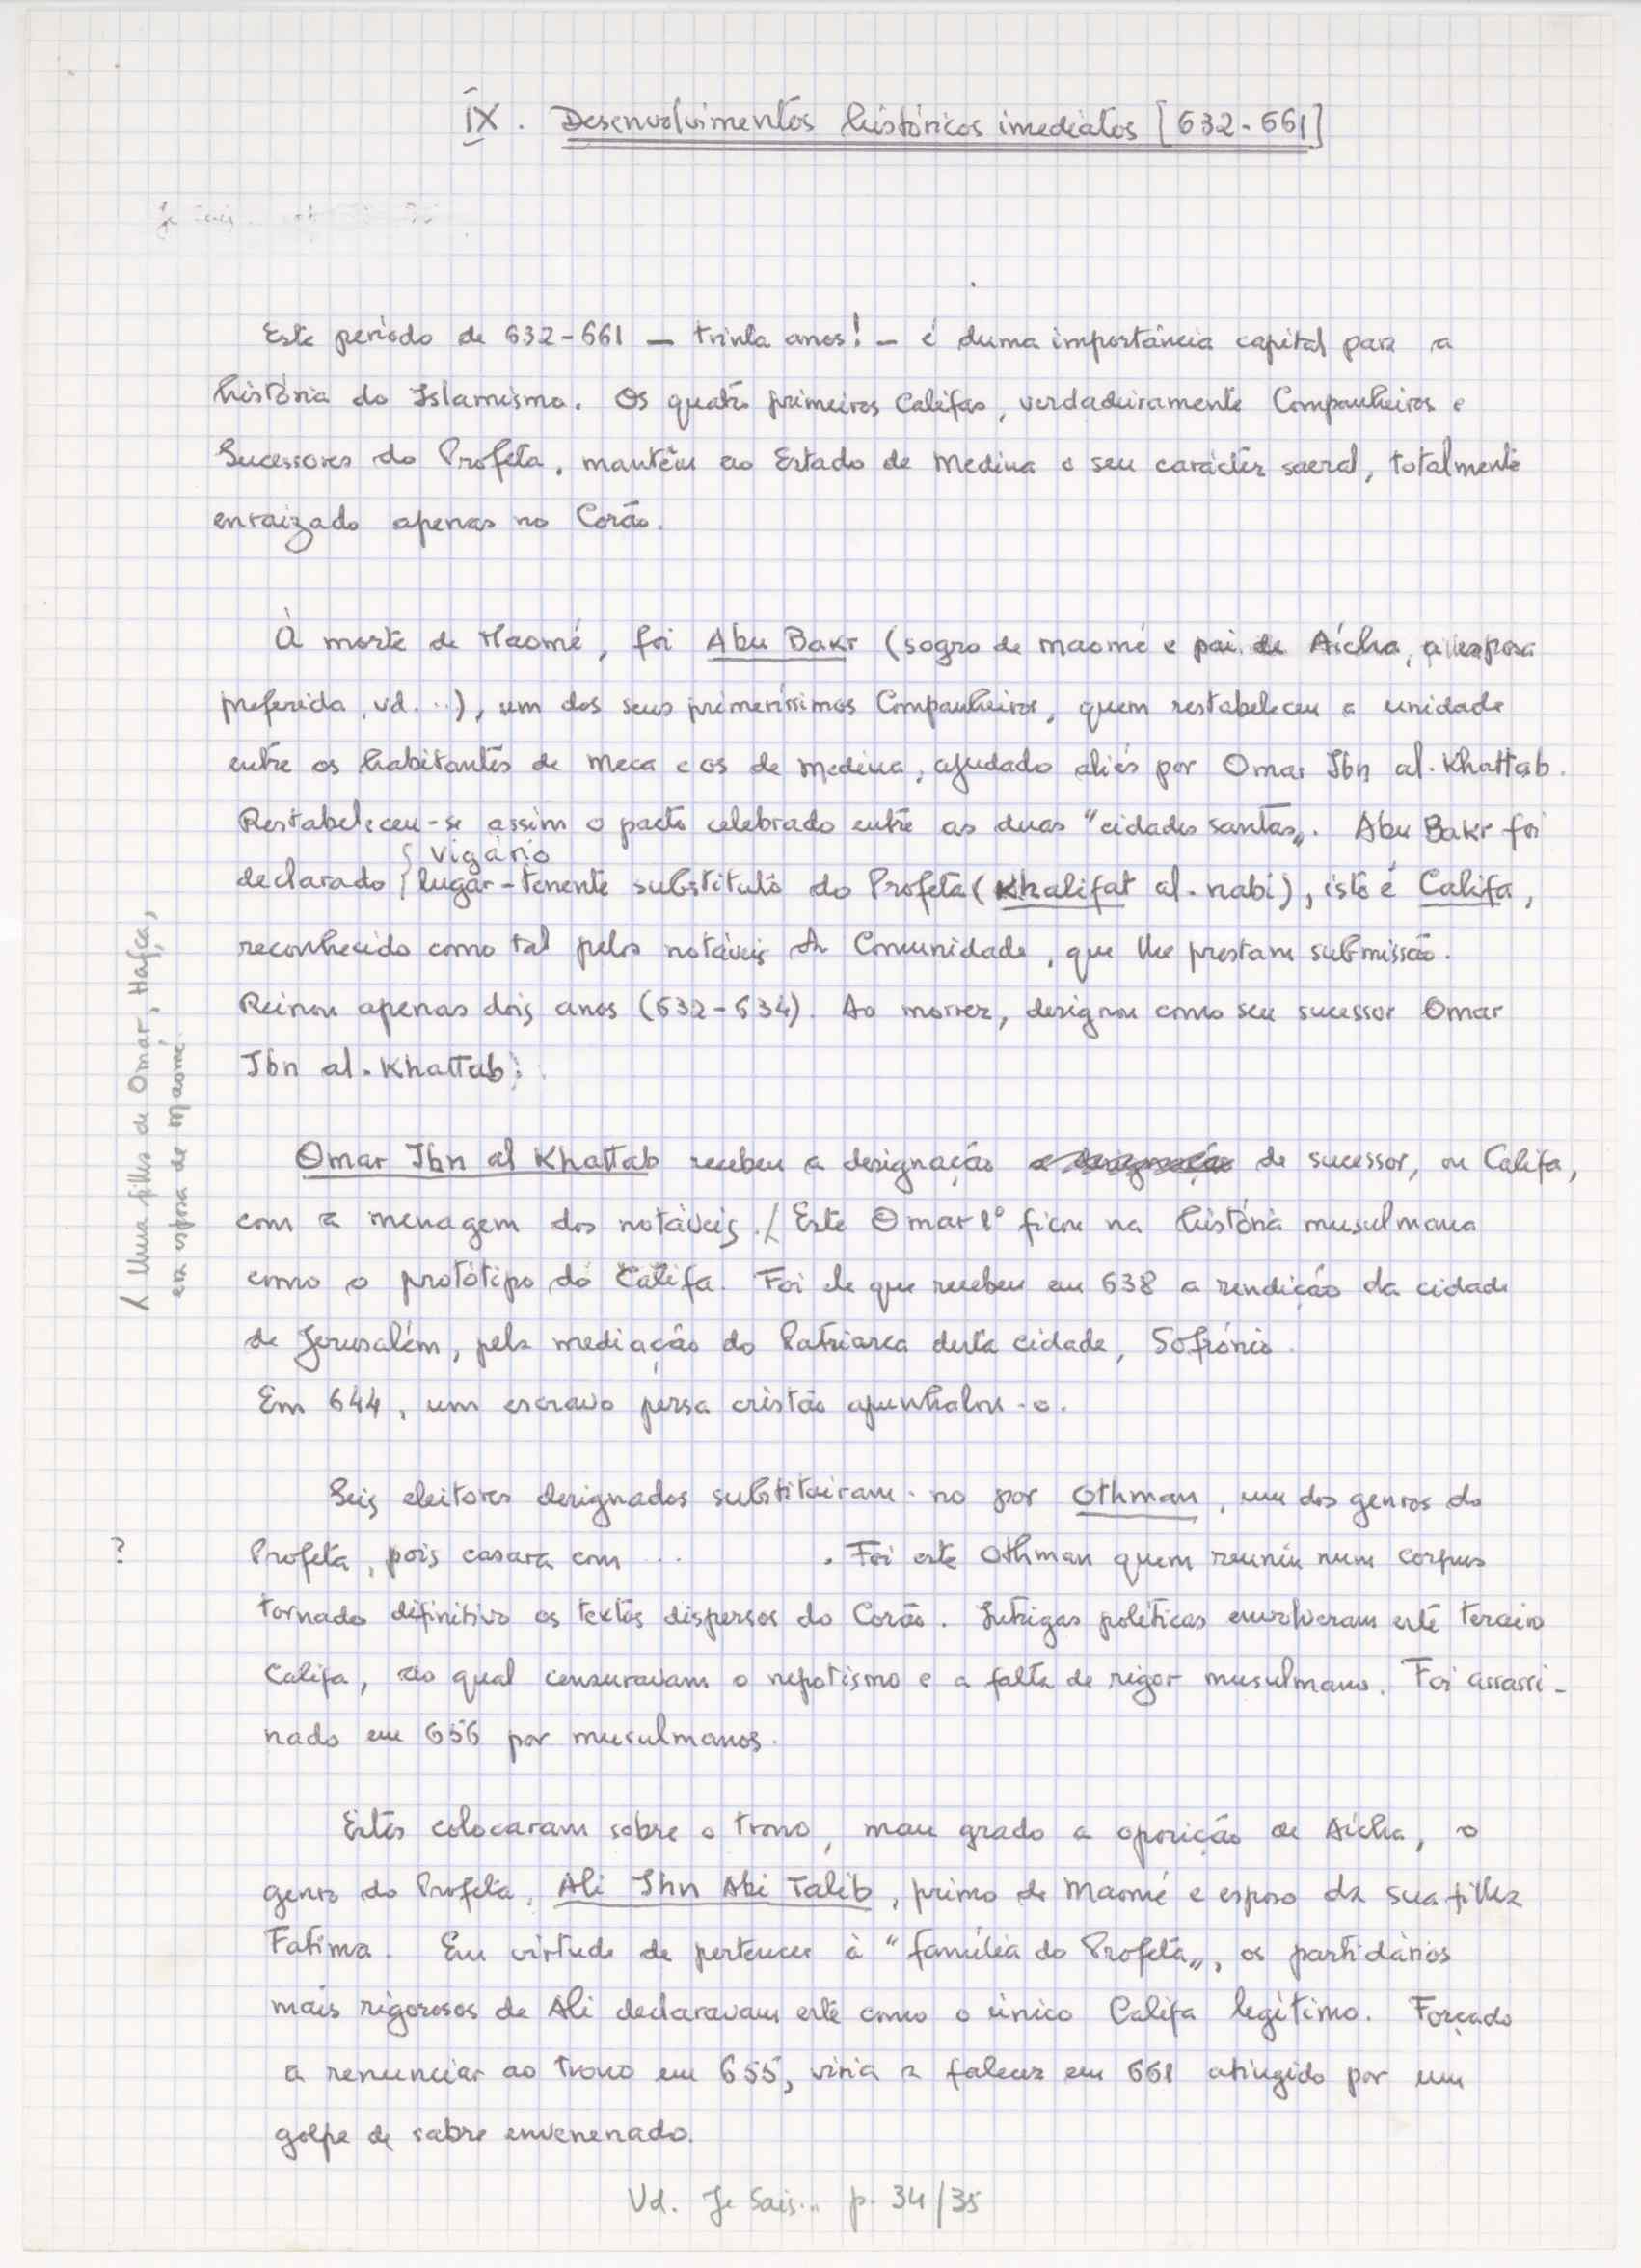 IX. Desenvolvimentos históricos imediatos [632-661]
Este período de 632-661 — trinta anos! — é duma importância capital para a
história do Islamismo. Os quatro primeiros Califas, verdadeiramente Companheiros e
Sucessores do Profeta, mantêm ao Estado de Medina o seu carácter sacral, totalmente
enraizado apenas no Corão.
À morte de Maomé, foi Abu Bakr (sogro de Maomé e pai de Aícha, a esposa
preferida, vd. ...), um dos seus primeiríssimos Companheiros, quem restabeleceu a unidade
entre os habitantes de Meca e os de Medina, ajudado aliás por Omar Ibn al-Khattab.
Restabeleceu-se assim o pacto celebrado entre as duas "cidades santas". Abu Bakr foi
vigário
declarado { lugar-tenente substituto do Profeta (Khalifat al-nabi), isto é Califa,
reconhecido como tal pelos notáveis da Comunidade, que lhe prestam submissão.
Reinou apenas dois anos (632-634). Ao morrer, designou como seu sucessor Omar
Ibn al-Khattab.
Omar Ibn al Khattab recebeu a designação de sucessor, ou Califa,
com a menagem dos notáveis./ Este Omar 1º ficou na história musulmana
como o protótipo do Califa. Foi ele que recebeu em 638 a rendição da cidade
de Jerusalém, pela mediação do Patriarca desta cidade, Sofrónio.
Em 644, um escravo persa cristão apunhalou-o.
λ Uma filha de Omar, Hafça,
era esposa de Maomé.
Seis eleitores designados substituiram-no por Othman, um dos genros do
? Profeta, pois casara com ... . Foi este Othman quem reuniu num corpus
tornado difinitivo os textos dispersos do Corão. Intrigas políticas envolveram este terceiro
Califa, ao qual censuravam o nepotismo e a falta de rigor musulmano. Foi assassi-
nado em 656 por musulmanos.
Estes colocaram sobre o trono, mau grado a oposição de Aícha, o
genro do Profeta, Ali Ibn Abi Talib, primo de Maomé e esposo da sua filha
Fatima. Em virtude de pertencer à "família do Profeta", os partidários
mais rigorosos de Ali declaravam este como o único Califa legítimo. Forçado
a renunciar ao trono em 655, viria a falecer em 661 atingido por um
golpe de sabre envenenado.
Vd. Je Sais... p. 34/35